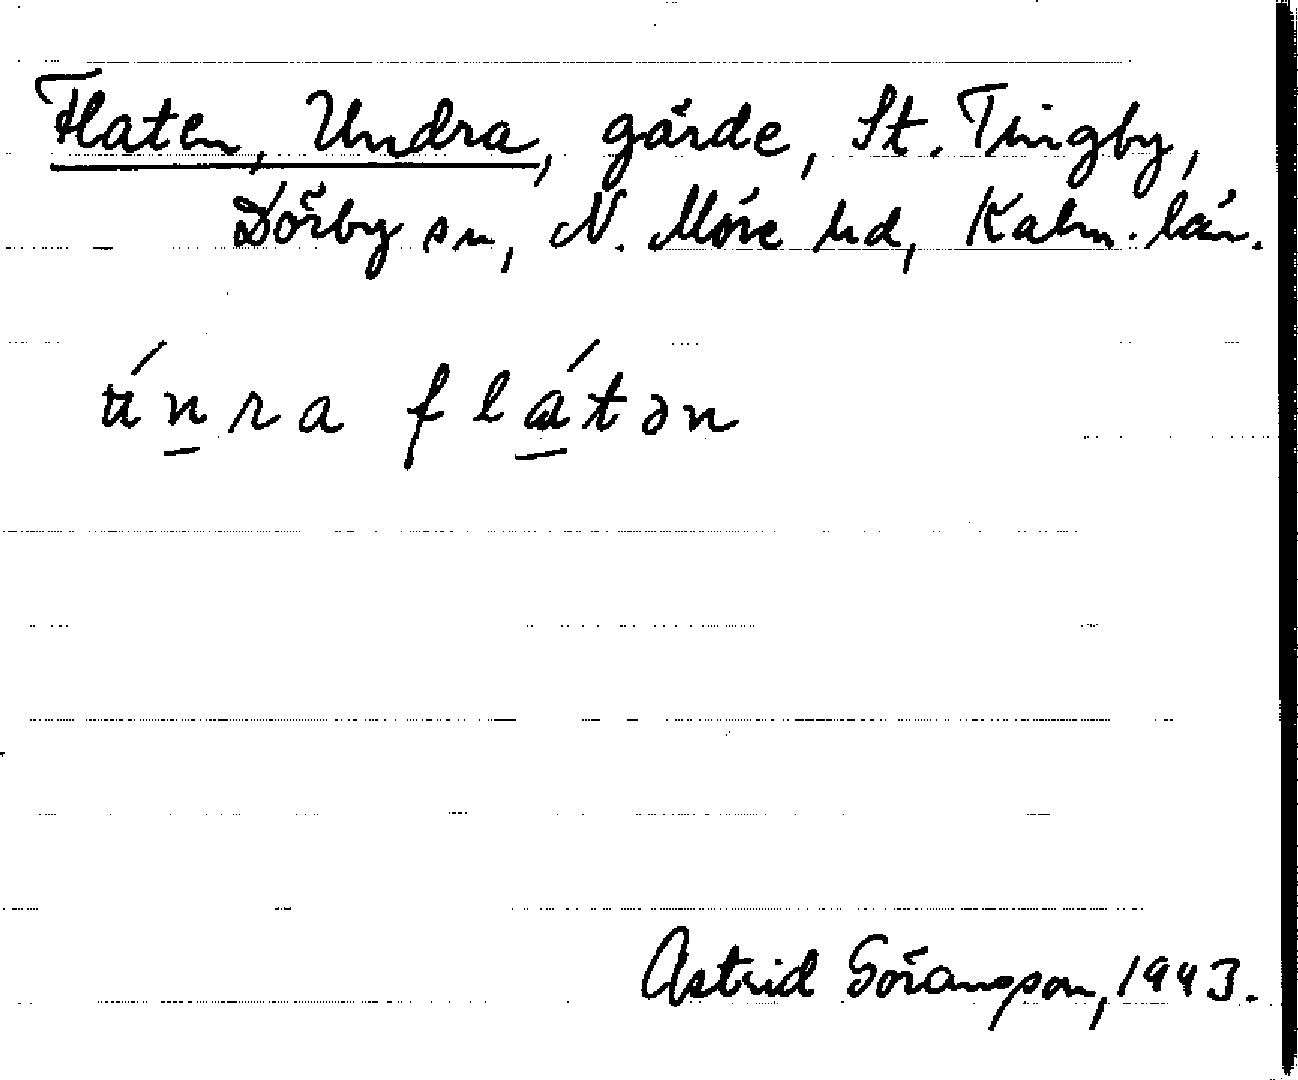 Flaten, Undra, gärde, St. Tingby,
Dörby sn, N. Möre hd, Kalm. län.
únra flátən
Astrid Göransson, 1943.